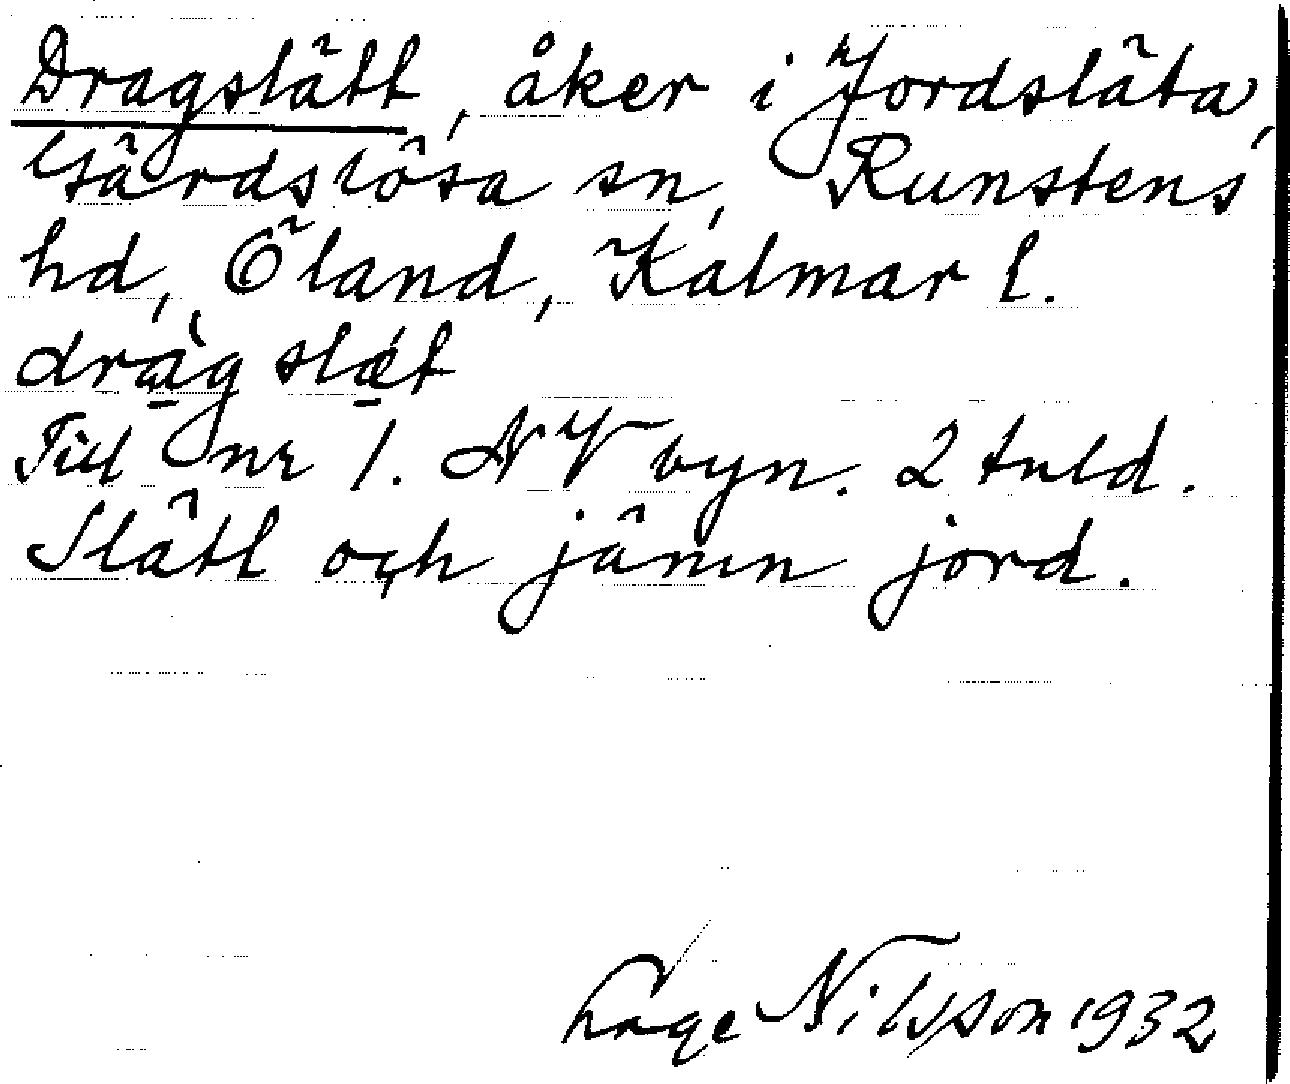 Dragslätt, åker i Jordsläta,
Gärdslösa sn, Runstens
hd, Öland, Kalmar l.
drà̱g slǽ̱t
Till nr 1. NV byn. 2 tnld.
Slätt och jämn jord.
Åge Nilsson 1932